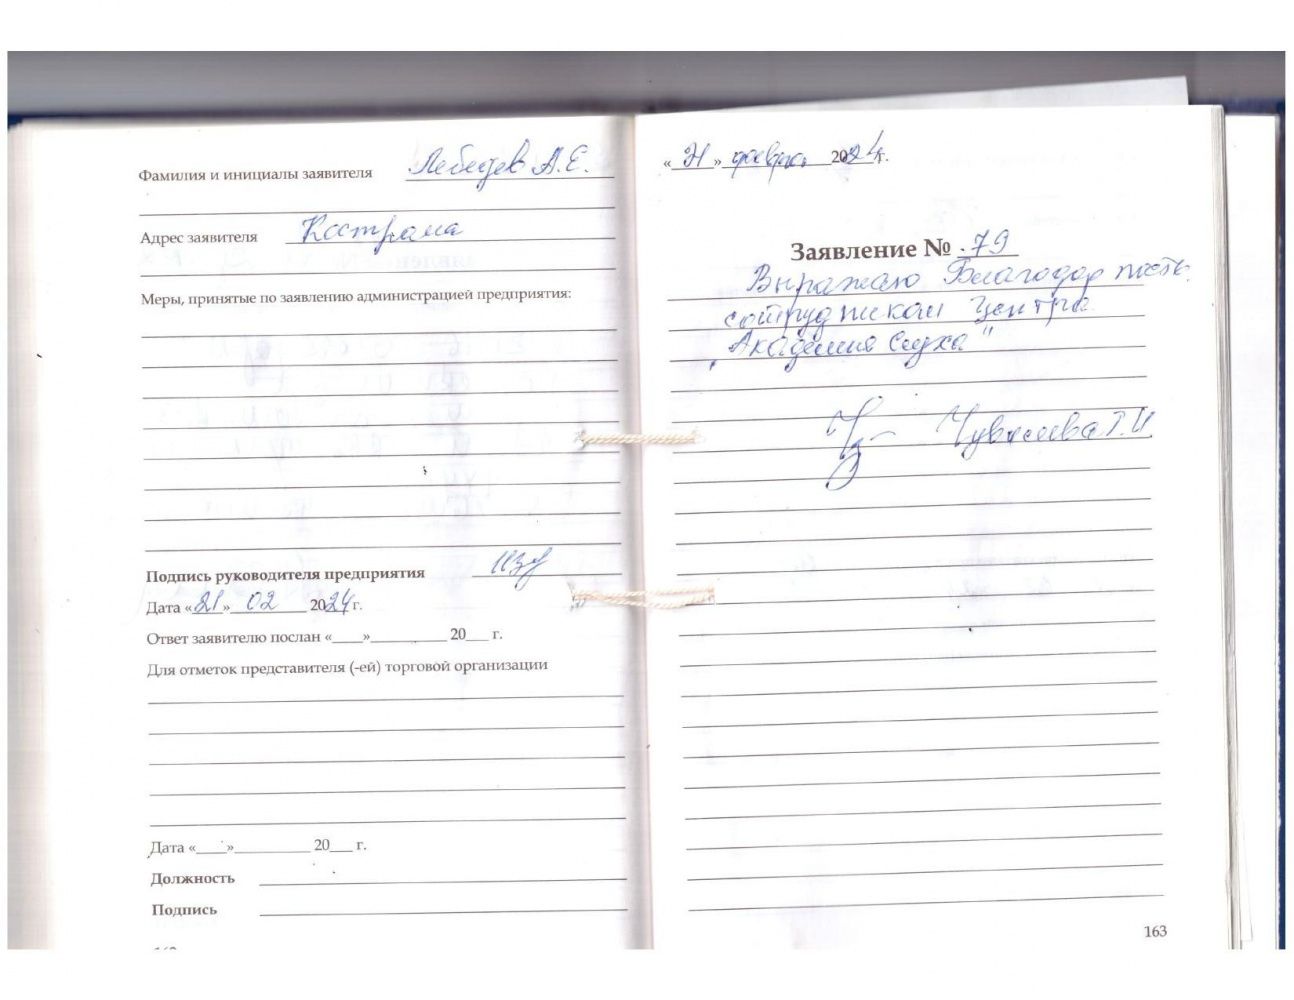 Фамилия и инициалы заявителя Лебедев А.Е.
Адрес заявителя Кострома
Меры, принятые по заявлению администрацией предприятия:
Подпись руководителя предприятия
Дата «21» 02 2024 г.
Ответ заявителю послан «___»__________ 20___ г.
Для отметок представителя (-ей) торговой организации
Дата «___»__________ 20___ г.
Должность
Подпись
«21» февраль 2024г.
Заявление № 79
Выражаю Благодарность
сотрудникам Центра
„Академия Слуха"
Т.И.
163